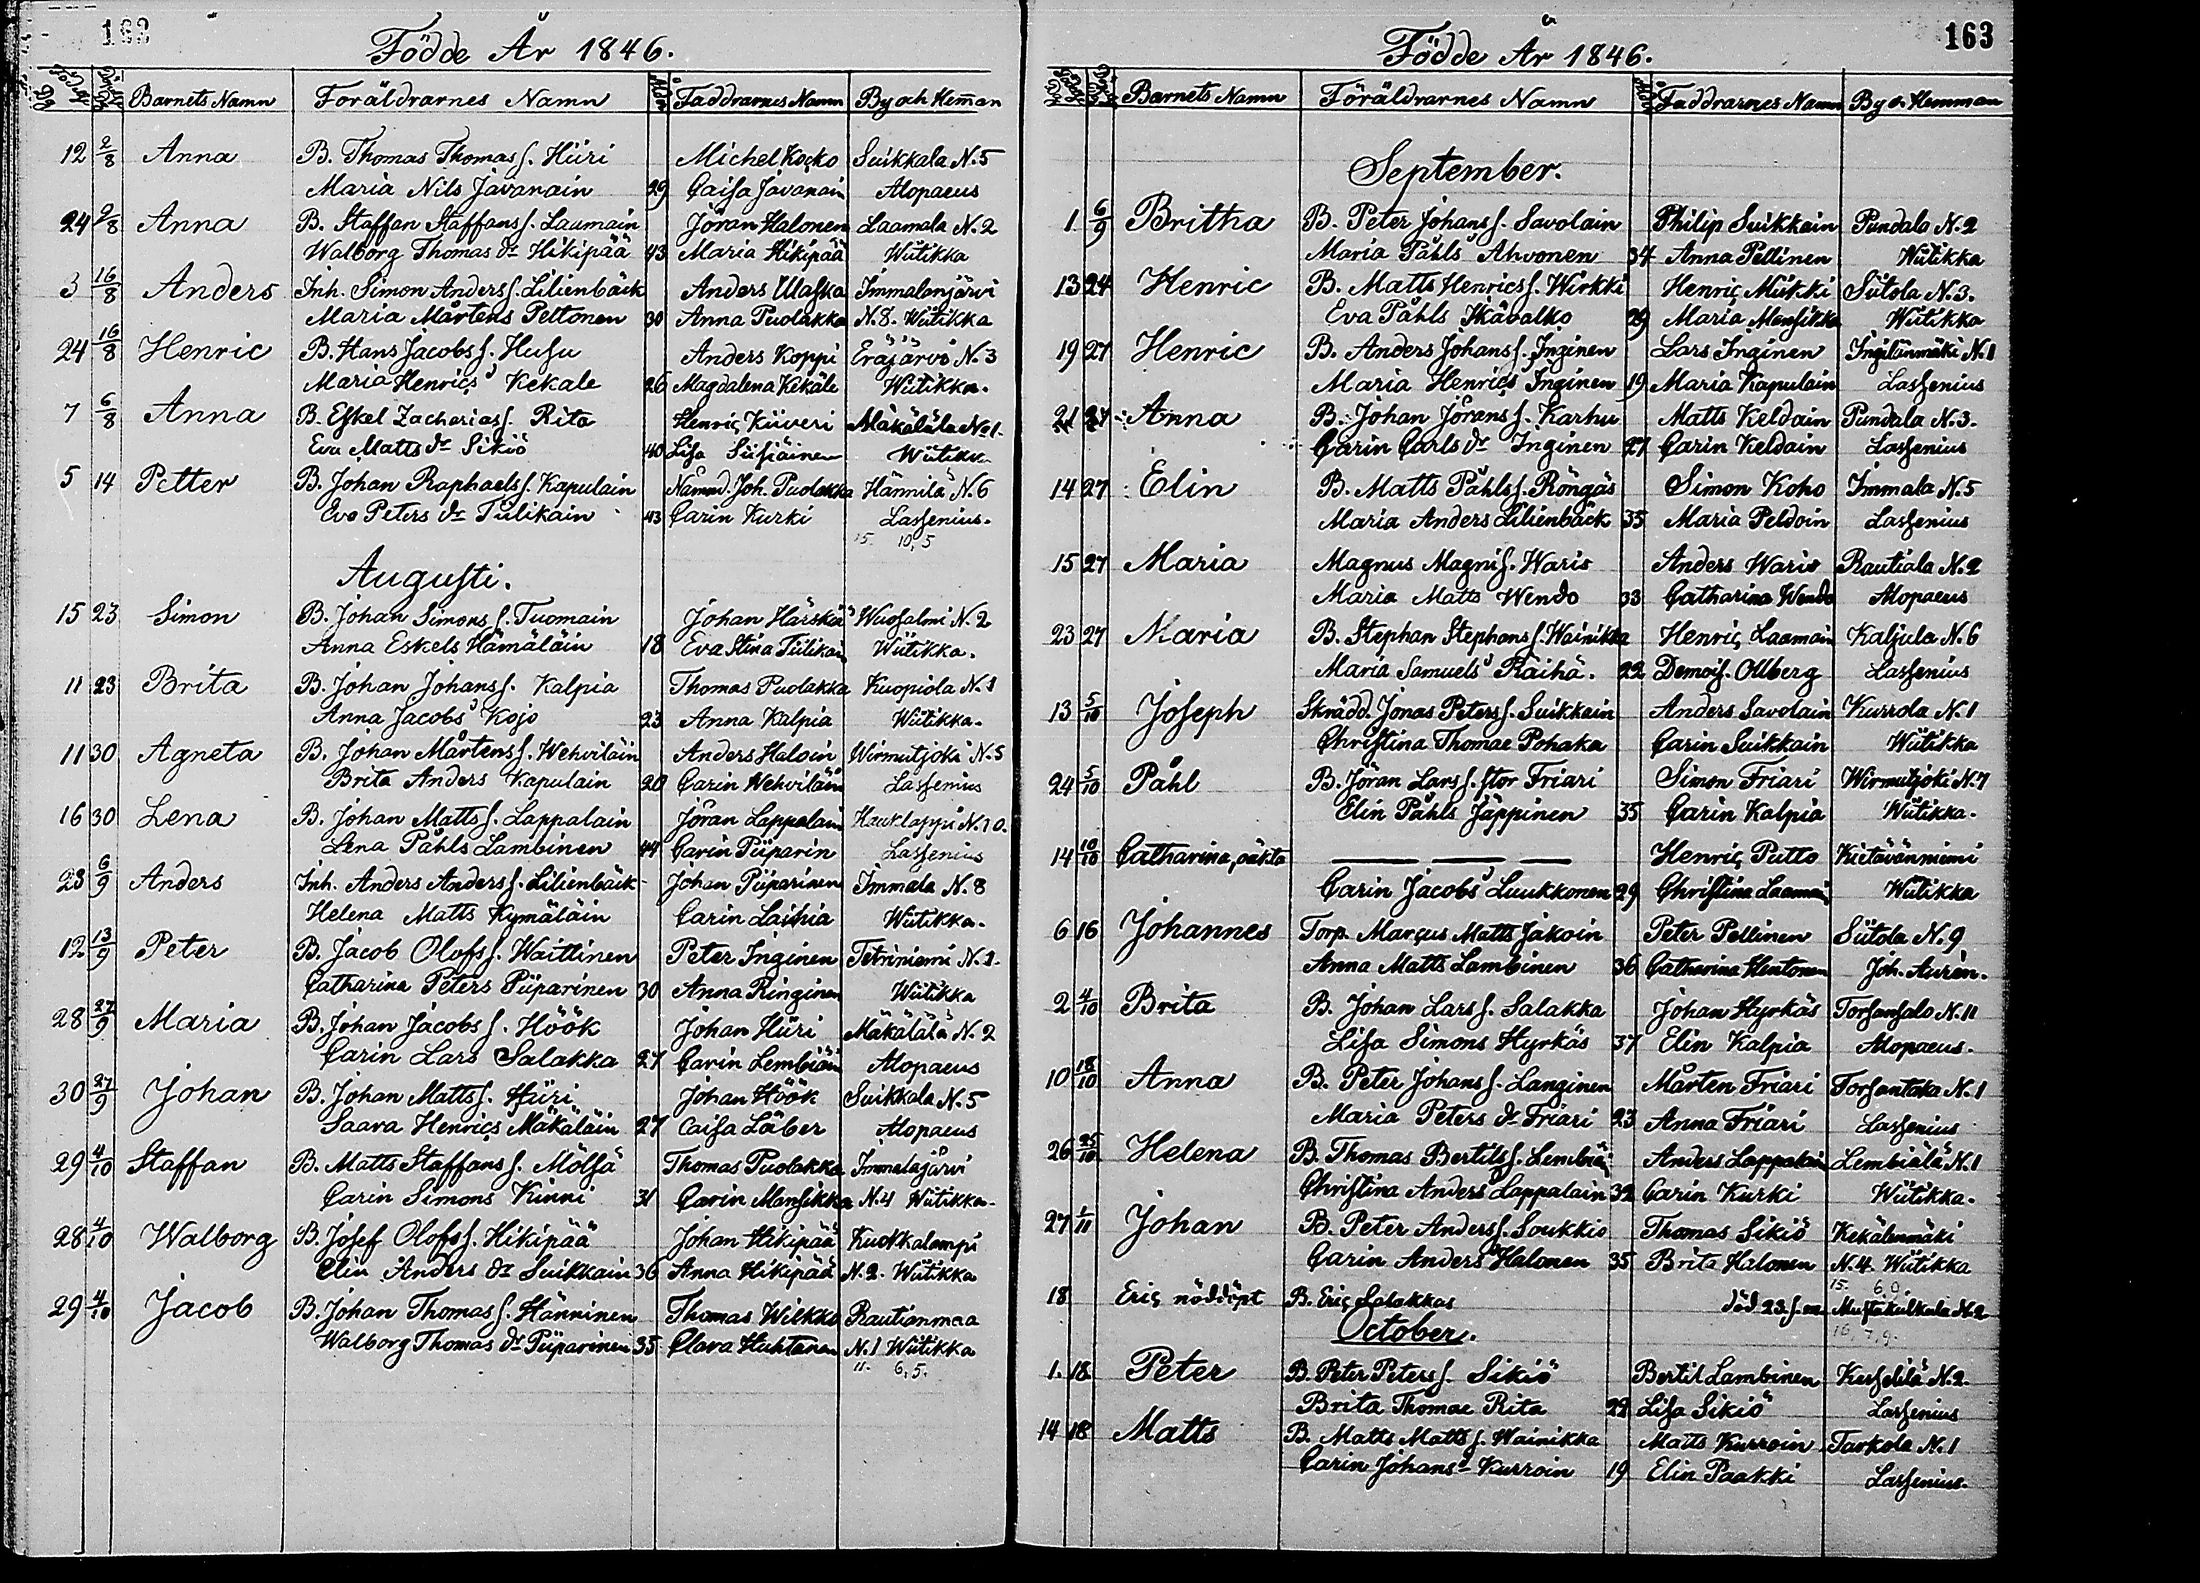 Födde År 1846.
Barnets Namn Föräldrarnes Namn Ålder Faddrarnes Namn By och Hem̄an
12 2/8 Anna B. Thomas Thomas s. Hüri Michel Kocko Suikkala N. 5
Maria Nils Jävanain 29 Caisa Jävanain Alopaeus
24 2/8 Anna B. Staffan Staffans s. Laumain Jöran Halonen Laamala N. 2
Walborg Thomas dr Hikipää 43 Maria Hikipää Wiitikka
3 16/8 Anders Inh. Simon Anders s. Lilienbäck Anders Ulaska Immalanjärvi
Maria Mårtens Peltonen 30 Anna Puolakka N. 8. Wiitikka
24 16/8 Henric B. Hans Jacobs s. Husu Anders Koppi Eräjärvi N. 3
Maria Henrics Kekale 26 Magdalena Kekäle Wiitikka.
7 6/8 Anna B. Eskel Zacharias s. Rita Henric Kiiveri Mäkälälä No 1.
Eva Matts dr Sikiö 40 Lisa Siisiäinen Wiitikka
5 14 Petter B. Johan Raphaels s. Kapulain Nämnd. Joh. Puolakka Hännilä N. 6
Eva Peters dr Tulikain 43 Carin Kurki Lassenius.
15. 10, 5
Augusti.
15 23 Simon B. Johan Simons s. Tuomain Johan Härskiä Wuosalmi N. 2
Anna Eskels Hämäläin 18 Eva Stina Tiilikain Wiitikka.
11 23 Brita B. Johan Johans s. Kalpia Thomas Puolakka Kuopiola N. 1
Anna Jacobs Kojo 23 Anna Kalpia Wiitikka.
11 30 Agneta B. Johan Mårtens s. Wehviläin Anders Haloin Wirmutjoki N. 5
Brita Anders Kapulain 20 Carin Wehviläin Lassenius
16 30 Lena B. Johan Matts s. Lappalain Jöran Lappalain Hauklappi N. 10.
Lena Påhls Lambinen 44 Carin Piiparin Lassenius
23 6/9 Anders Inh. Anders Anders s. Lilienbäck Johan Piiparinen Immala N. 8
Helena Matts Kymäläin Carin Laihia Wiitikka.
12 13/9 Peter B. Jacob Olofs s. Waittinen Peter Inginen Tetriniemi N. 1.
Catharina Peters Piiparinen 30 Anna Ringinen Wiitikka
28 27/9 Maria B. Johan Jacobs s. Höök Johan Hüri Mäkälälä N. 2
Carin Lars Salakka 27 Carin Lembiäin Alopaeus
30 27/9 Johan B. Johan Matts s. Hüri Johan Höök Suikkala N. 5
Saara Henrics Mäkäläin 27 Caisa Läber Alopaeus
29 4/10 Staffan B. Matts Staffans s. Mölsä Thomas Puolakka Immalajärvi
Carin Simons Kinni 31 Carin Mansikka N. 4 Wiitikka.
28 4/10 Walborg B. Josef Olofs s. Hikipää Johan Hikipää Kuokkalampi
Elin Anders dr Suikkain 36 Anna Hikipää N. 2. Wiitikka
29 4/10 Jacob B. Johan Thomas s. Hänninen Thomas Wilkko Rautianmaa
Walborg Thomas dr Piiparinen 35 Clara Huhtanen N. 1 Wiitikka
11. 6, 5.
163
Födde År 1846.
Barnets Namn Föräldrarnes Namn Ålder Faddrarnes Namn By o. Hemman
September.
1 6/9 Britha B. Peter Johans s. Savolain Philip Suikkain Pundala N. 2
Maria Påhls Ahvonen 34 Anna Pellinen Wiitikka
13 24 Henric B. Matts Henrics s. Wirkki Henric Miikki Siitola N. 3.
Eva Påhls Ikävalko 29 Maria Mansikka Wiitikka
19 27 Henric B. Anders Johans s. Inginen Lars Inginen Ingilänmäki N. 1
Maria Henrics Inginen 19 Maria Kapulain Lassenius
21 27 Anna B. Johan Jörans s. Karhu Matts Keldain Pundala N. 3.
Carin Carls dr Inginen 27 Carin Keldain Lassenius
14 27 Elin B. Matts Påhls s. Röngäs Simon Koho Immala N. 5
Maria Anders Lilienbäck 35 Maria Peldoin Lassenius
15 27 Maria Magnus Magni s. Waris Anders Waris Rautiala N. 2
Maria Matts Wendo 33 Catharina Wendo Alopaeus
23 27 Maria B. Stephan Stephans s. Wainikka Henric Laamain Kaljula N. 6
Maria Samuels Raihä. 22 Demois. Ollberg Lassenius
13 5/10 Joseph Skrädd. Jonas Peters s. Suikkain Anders Savolain Kurrola N. 1
Christina Thomae Pohaka Carin Suikkain Wiitikka
24 5/10 Påhl B. Jöran Lars s. stor Friari Simon Friari Wirmutjoki N. 7
Elin Påhls Jäppinen 35 Carin Kalpia Wiitikka.
14 10/10 Catharina, oäkta Henric Putto Kietävänniemi
Carin Jacobs Luukkonen 29 Christina Laamain Wiitikka
6 16 Johannes Torp. Marcus Matts Jakoin Peter Pellinen Siitola N. 9
Anna Matts Lambinen 36 Catharina Hentonen Joh. Aurén.
2 4/10 Brita B. Johan Lars s. Salakka Johan Hyrkäs Torsansalo N. 11
Lisa Simons Hyrkäs 37 Elin Kalpia Alopaeus.
10 18/10 Anna B. Peter Johans s. Langinen Mårten Friari Torsantaka N. 1
Maria Peters dr Friari 23 Anna Friari Lassenius
26 25/10 Helena B. Thomas Bertils s. Lembiäi Anders Lappalain Lembiälä N. 1
Christina Anders Lappalain 32 Carin Kurki Wiitikka.
27 1/11 Johan B. Peter Anders s. Soukkio Thomas Sikiö Kekälenmäki
Carin Anders Halonen 35 Brita Halonen N. 4. Wiitikka
15. 6, 0.
18 Eric nöddöpt B. Eric Salakkas död 23. s. m. Mustakulkala N. 2
16, 7, 9.
October.
1. 18. Peter B. Peter Peters s. Sikiö Bertil Lambinen Kesselilä N. 2.
Brita Thomae Rita 22 Lisa Sikiö Lassenius
14 18 Matts B. Matts Matts s. Wainikka Matts Kurroin Tarkola N. 1
Carin Johans Kurroin 19 Elin Paakki Lassenius.